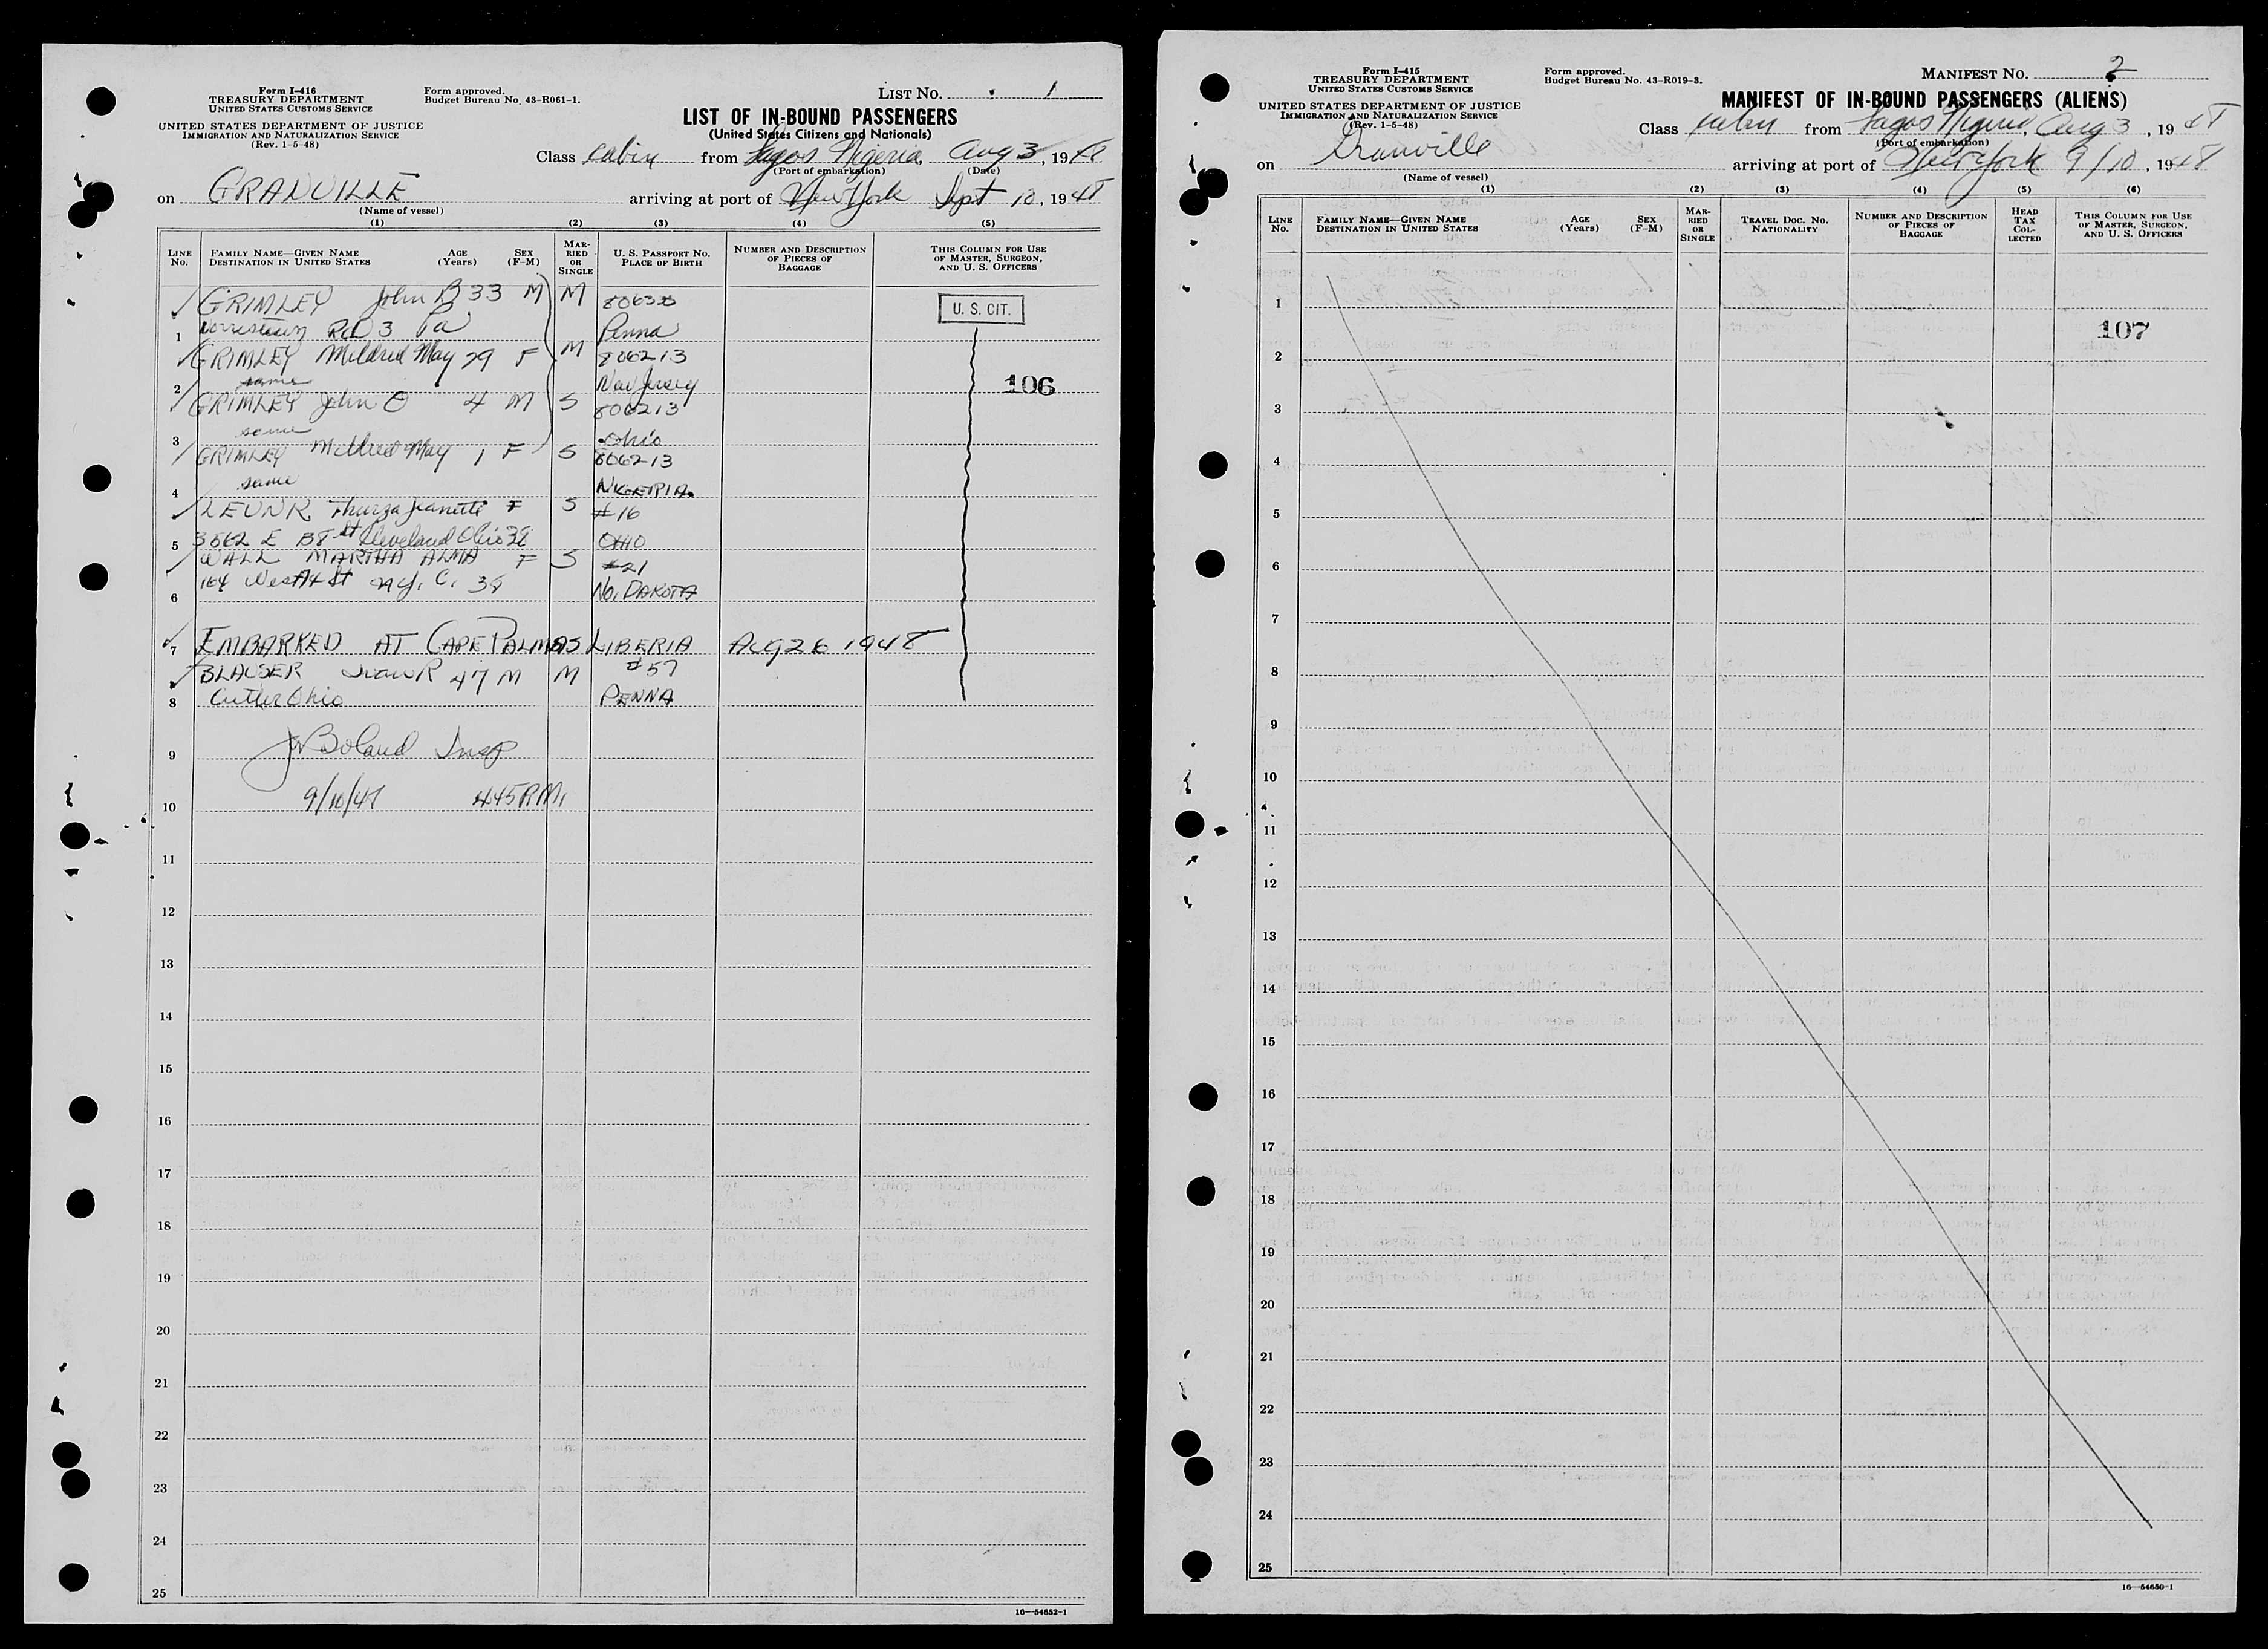 Form I-416
TREASURY DEPARTMENT
UNITED STATES CUSTOMS SERVICE
UNITED STATES DEPARTMENT OF JUSTICE
IMMIGRATION AND NATURALIZATION SERVICE
(Rev. 1-5-48)
Form approved.
Budget Bureau No. 43-R061-1.
LIST NO. 1
LIST OF IN-BOUND PASSENGERS
(United States Citizens and Nationals)
Class cabin from Lagos Nigeria, Aug 3, 1948
(Port of embarkation) (Date)
on GRANVILLE arriving at port of New York Sept 10, 1948
(Name of vessel)
(1) (2) (3) (4) (5)
LINE No. FAMILY NAME—GIVEN NAME DESTINATION IN UNITED STATES AGE (Years) SEX (F-M) MARRIED OR SINGLE U. S. PASSPORT NO. PLACE OF BIRTH NUMBER AND DESCRIPTION OF PIECES OF BAGGAGE THIS COLUMN FOR USE OF MASTER, SURGEON, AND U. S. OFFICERS
GRIMLEY John B 33 M M U. S. CIT.
1 Norristown RD 3 Pa Penna
GRIMLEY Mildred May 29 F M 806213
2 same New Jersey 106
GRIMLEY John O 4 M S 806213
3 same Ohio
GRIMLEY Mildred May 1 F S 806213
4 same NIGERIA
Jeanette F S #16
5 3862 E St Cleveland Ohio 38 OHIO
WALL MARTHA ALMA F S #21
6 164 West 74 St N.Y. C. No. DAKOTA
7 EMBARKED AT CAPE PALMAS LIBERIA AUG 26 1948
BLAUSER Ivan R 47 M M #57
8 Cutler Ohio PENNA
9 Boland Insp
10 445 P.M.
11
12
13
14
15
16
17
18
19
20
21
22
23
24
25
16—54652-1
Form I-415
TREASURY DEPARTMENT
UNITED STATES CUSTOMS SERVICE
UNITED STATES DEPARTMENT OF JUSTICE
IMMIGRATION AND NATURALIZATION SERVICE
(Rev. 1-5-48)
Form approved.
Budget Bureau No. 43-R019-3.
MANIFEST NO. 2
MANIFEST OF IN-BOUND PASSENGERS (ALIENS)
Class cabin from Lagos Nigeria, Aug 3, 1948
(Port of embarkation)
on Granville arriving at port of New York 9/10, 1948
(Name of vessel)
(1) (2) (3) (4) (5) (6)
LINE No. FAMILY NAME—GIVEN NAME DESTINATION IN UNITED STATES AGE (Years) SEX (F-M) MARRIED OR SINGLE TRAVEL DOC. NO. NATIONALITY NUMBER AND DESCRIPTION OF PIECES OF BAGGAGE HEAD TAX COLLECTED THIS COLUMN FOR USE OF MASTER, SURGEON, AND U. S. OFFICERS
1
107
2
3
4
5
6
7
8
9
10
11
12
13
14
15
16
17
18
19
20
21
22
23
24
25
16—54650-1